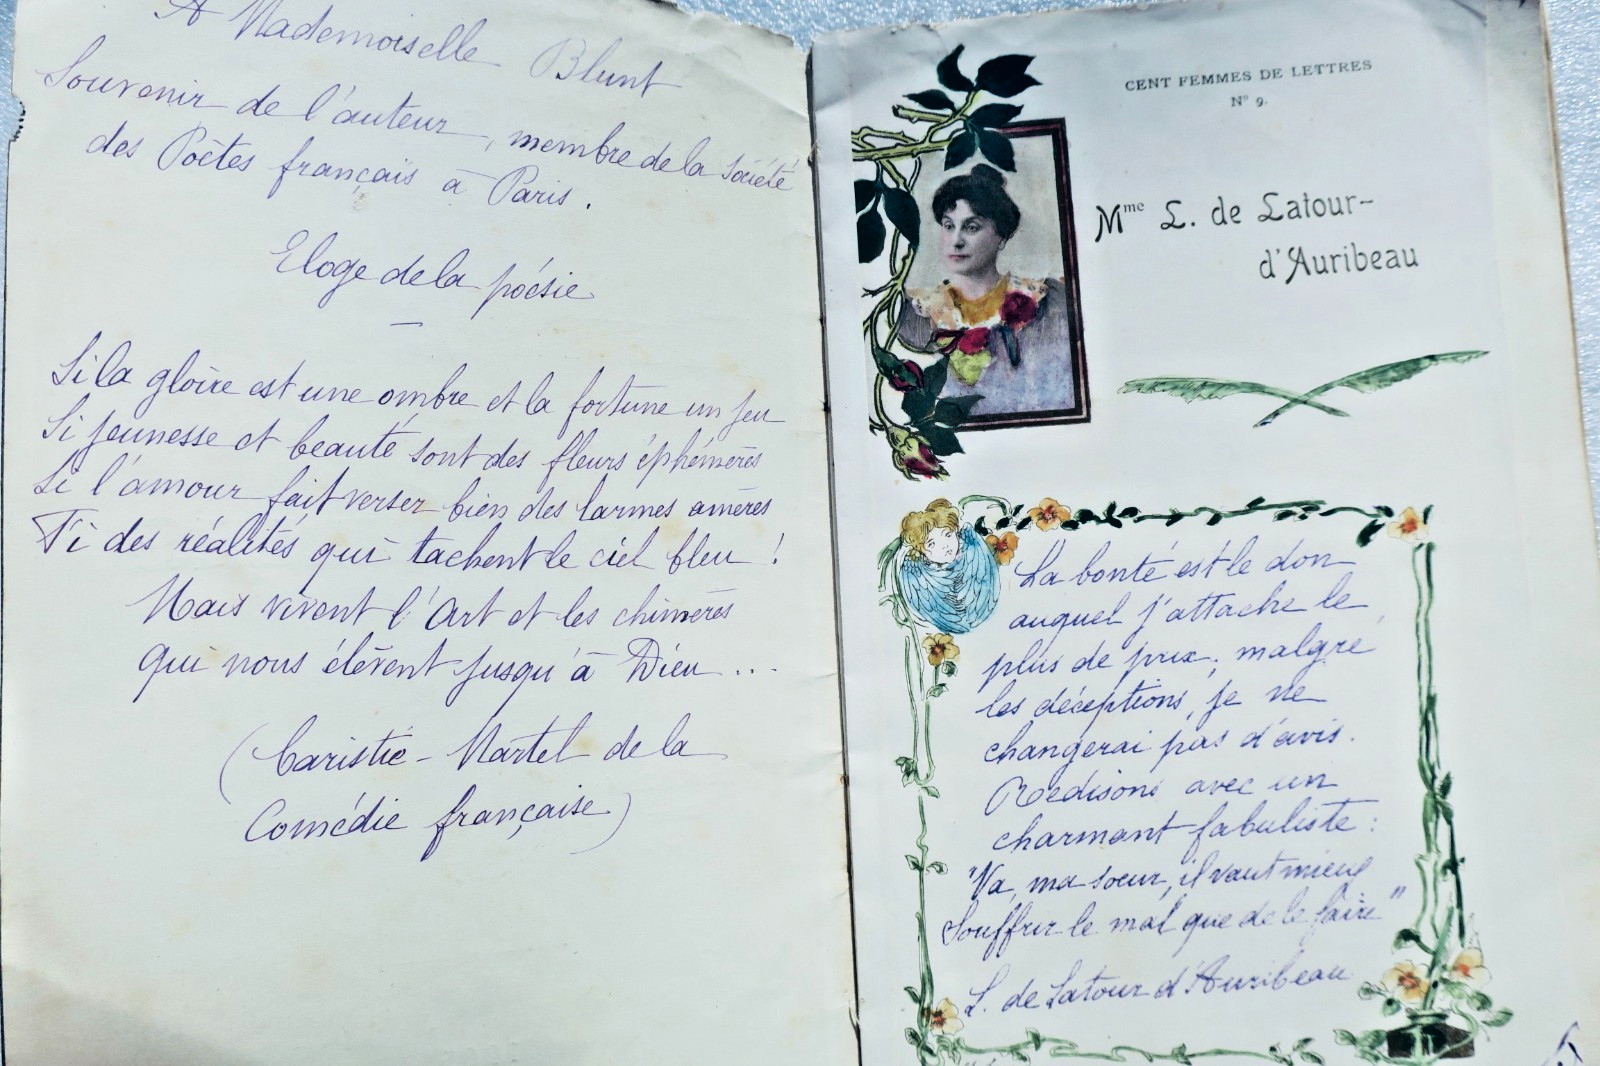 A Mademoiselle Blunt
Souvenir de l'auteur, membre de la Société
des Poètes français à Paris.
Eloge de la poésie
Si la gloire est une ombre et la fortune un jeu
Si jeunesse et beauté sont des fleurs éphémères
Si l'amour fait verser bien des larmes amères
Fi des réalités qui tachent le ciel bleu !
Mais vivent l'Art et les chimères
qui nous élèvent jusqu'à Dieu...
(Caristie-Martel de la
Comédie française)
CENT FEMMES DE LETTRES
N° 9.
Mme L. de Latour-
d'Auribeau
La bonté est le don
auquel j'attache le
plus de prix; malgré
les déceptions, je ne
changerai pas d'avis.
Redisons avec un
charmant fabuliste :
"Va, ma sœur, il vaut mieux
souffrir le mal que de le faire"
L. de Latour d'Auribeau